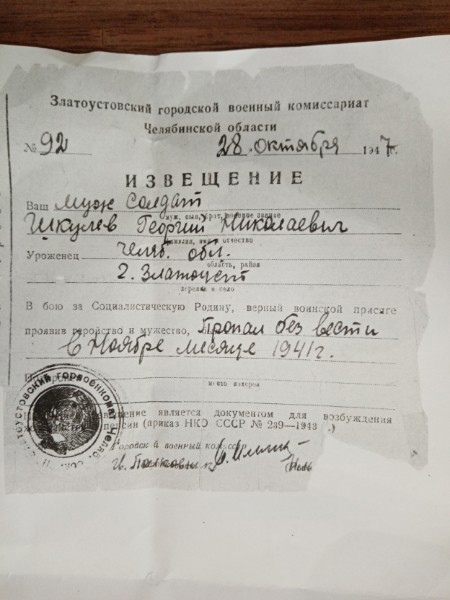 Златоустовский городской военный комиссариат
Челябинской области
№ 92 28 октября 1947 г.
ИЗВЕЩЕНИЕ
Ваш муж солдат
муж, сын, брат, военное звание
Шкулев Георгий Николаевич
фамилия, имя и отчество
Уроженец Челяб. обл.
область, район
г. Златоуст
деревня и село
В бою за Социалистическую Родину, верный воинской присяге
проявив геройство и мужество, пропал без вести
в Ноябре месяце 1941 г.
является документом для возбуждения
(приказ НКО СССР № 239—1943 .)
военный комиссар